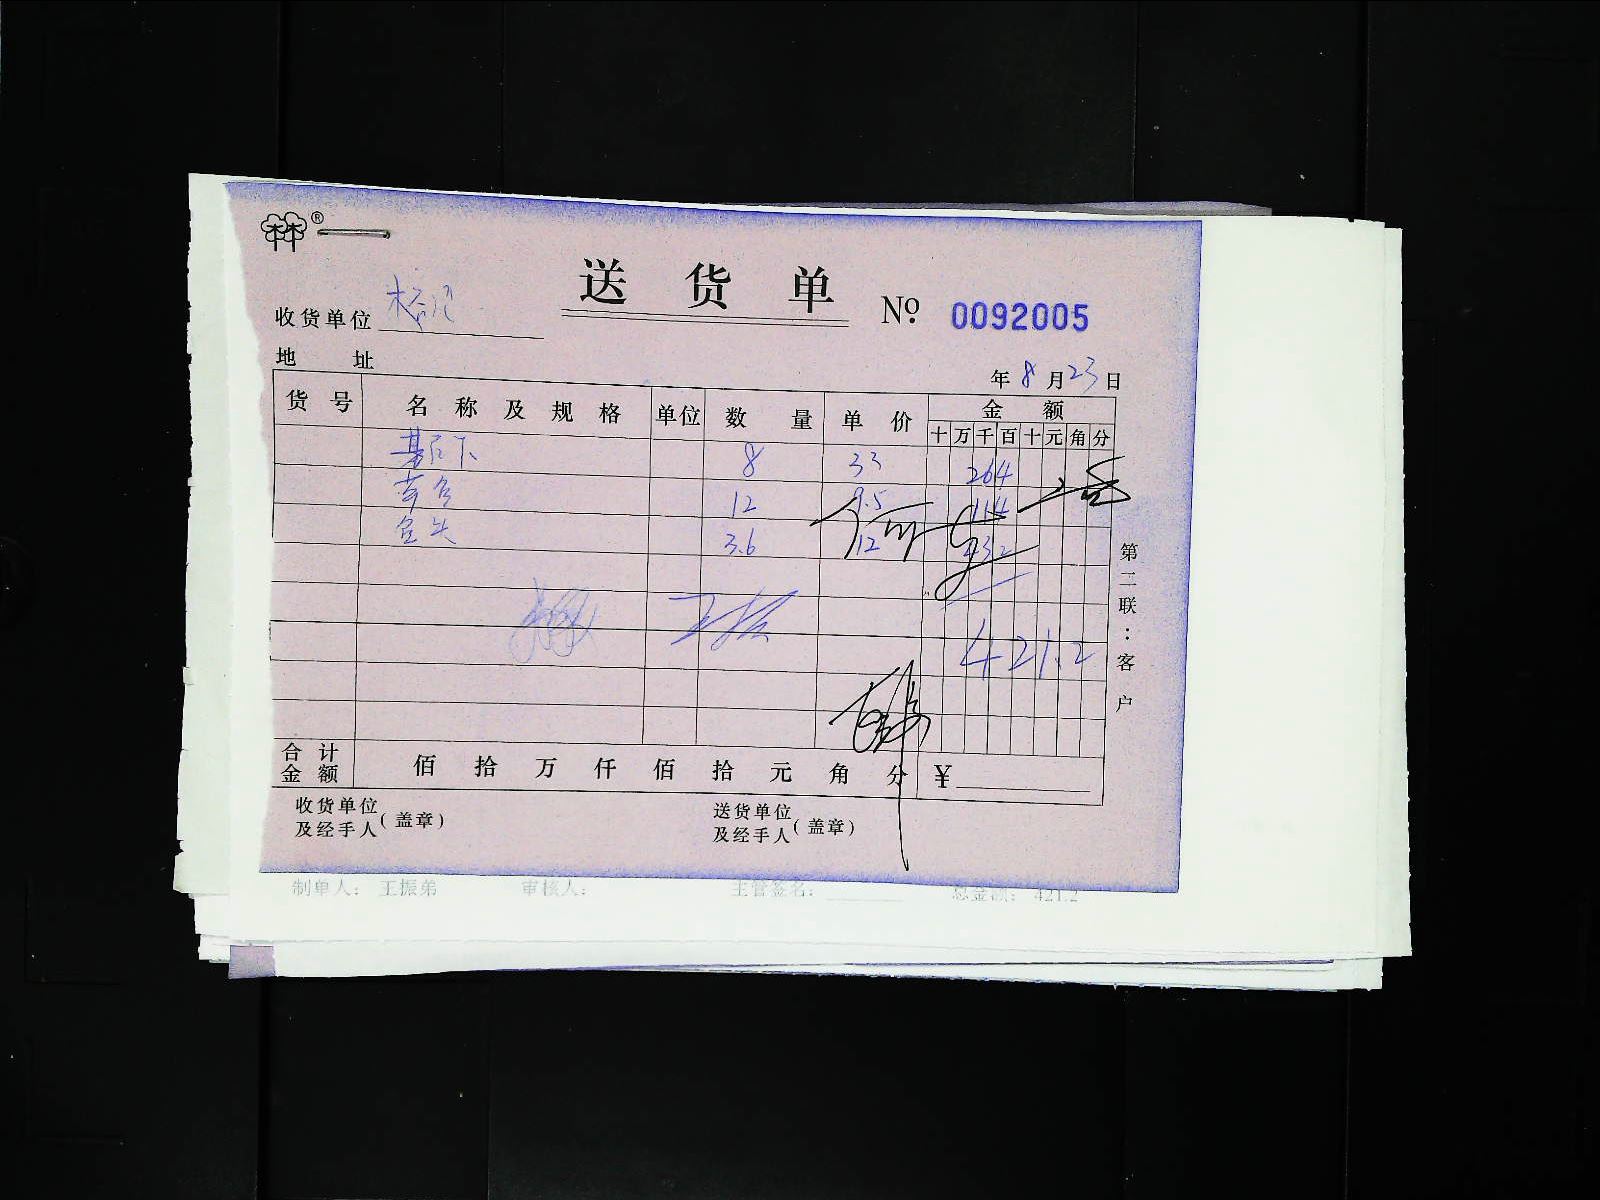 林®
送货单 № 0092005
收货单位
地址
年 8 月 23 日
货号 名称及规格 单位 数量 单价 金额
十 万 千 百 十 元 角 分
基尾下 8 33 264
12 9.5 114
鱼头 3.6 12 43.2
421.2
合计金额 佰 拾 万 仟 佰 拾 元 角 分 ¥
收货单位及经手人(盖章) 送货单位及经手人(盖章)
第二联：客户
制单人： 王振弟 审核人： 主管签名： 总金额： 421.2